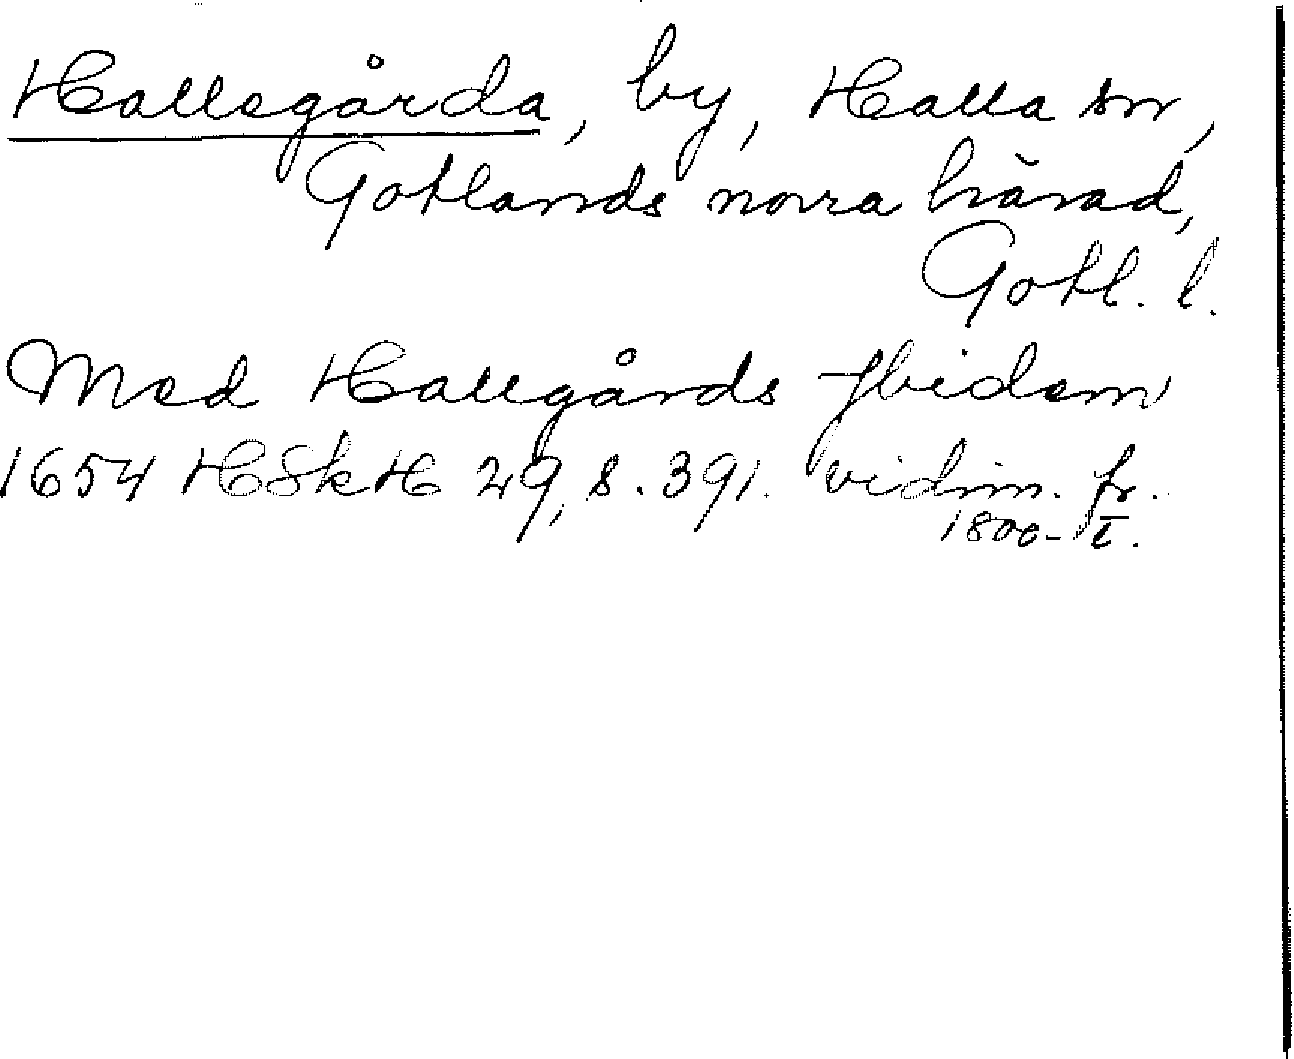 Hallegårda, by, Halla sn,
Gotlands norra härad,
Gotl. l.
Med Hallgårds jbidem
1654 HSkH 29, s. 391. vidim. fr.
1800-t.